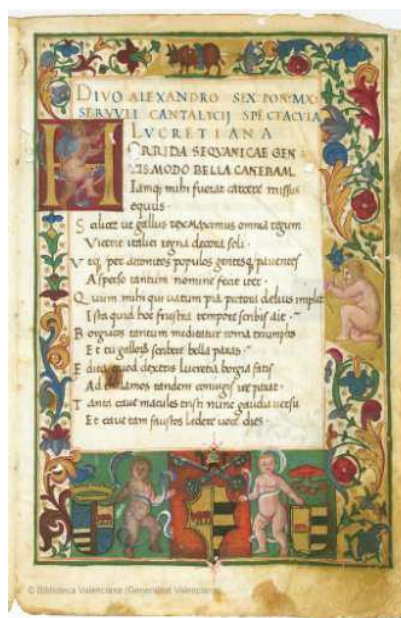 DIVO ALEXANDRO SEX PON MX
SERVVLI CANTALYCII SPECTACVLA
LVCRETIANA
HORRIDA SEQVANICAE GEN
TIS MODO BELLA CANEBAM
Iamq; mihi fuerat carcere missus
equus
Scilicet ut gallus rex maximus omnia regum
Vicerit italici regna decora soli
Vtq; per attonitos populos gentesq; pauentes
Aspero tantum nomine fecit iter
Quum mihi qui uatum pia pectora delius implet
Ista quid hoc frustra tempore scribis ait
Borgias tantum meditatur roma triumphos
Et tu gallorum scribere bella paras
Edita quod dextris lucretia borgia fatis
Ad thalamos tandem coniugis ire parat
Tanta caue macules tristi nunc gaudia uersu
Et caue tam faustos ledere uoce dies
© Biblioteca Valenciana (Generalitat Valenciana)